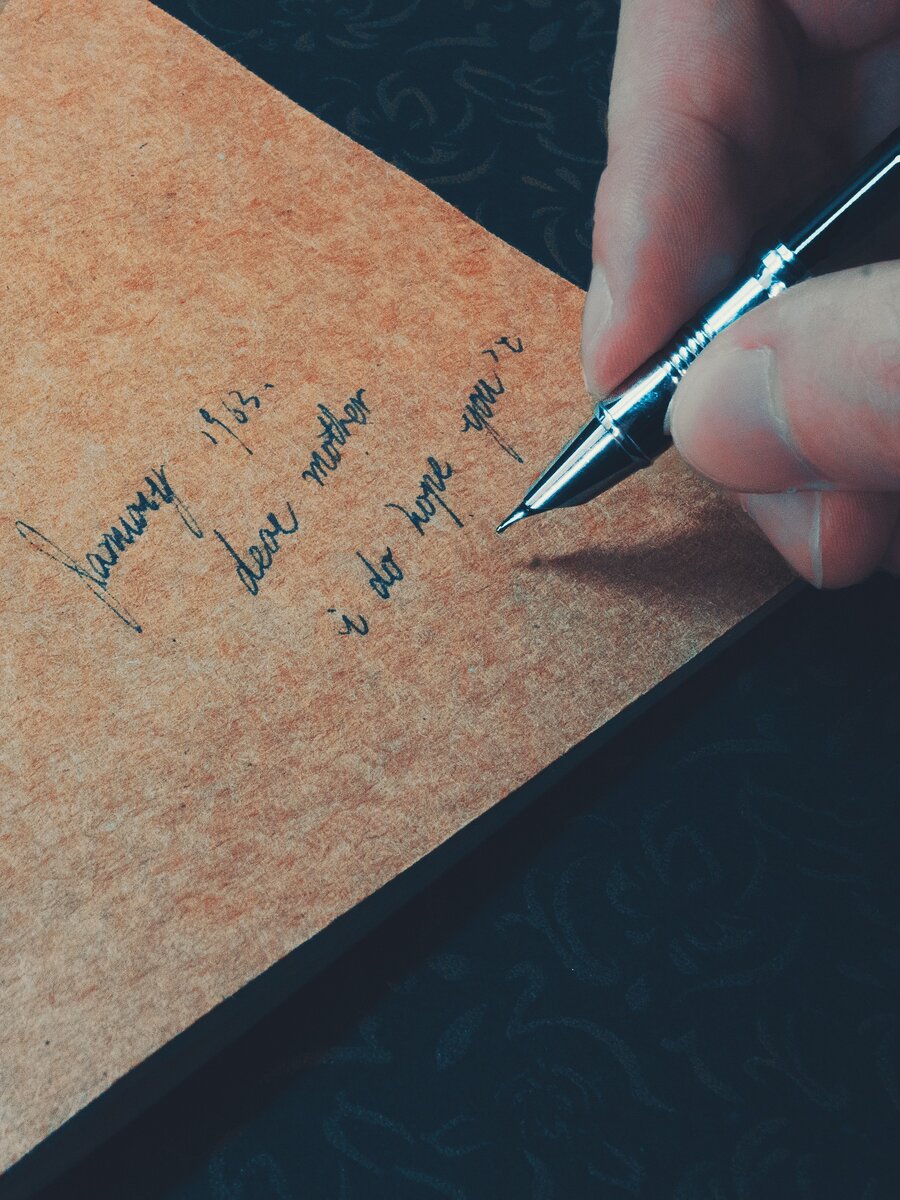 January 1963.
dear mother
i do hope you't